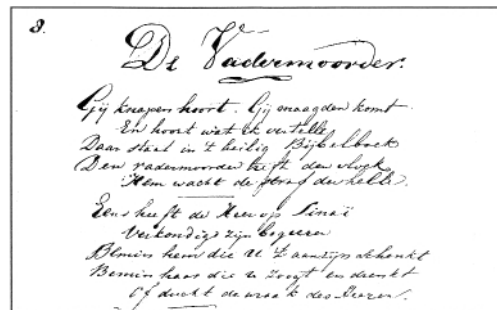 8.
De Vadermoorder.
Gij knapen hoort. Gij maagden komt
En hoort wat ik vertelle
Daar staat in 't heilig Bijbelboek
Den vadermoorder treft den vloek
Hem wacht de straf der helle.
Eens heeft de Heer op Sinaï
Verkondigd zijn begeren
Bemin hem die U 't aanzijn schenkt
Bemin haar die u zoogt en drenkt
Of ducht de wraak des Heeren.